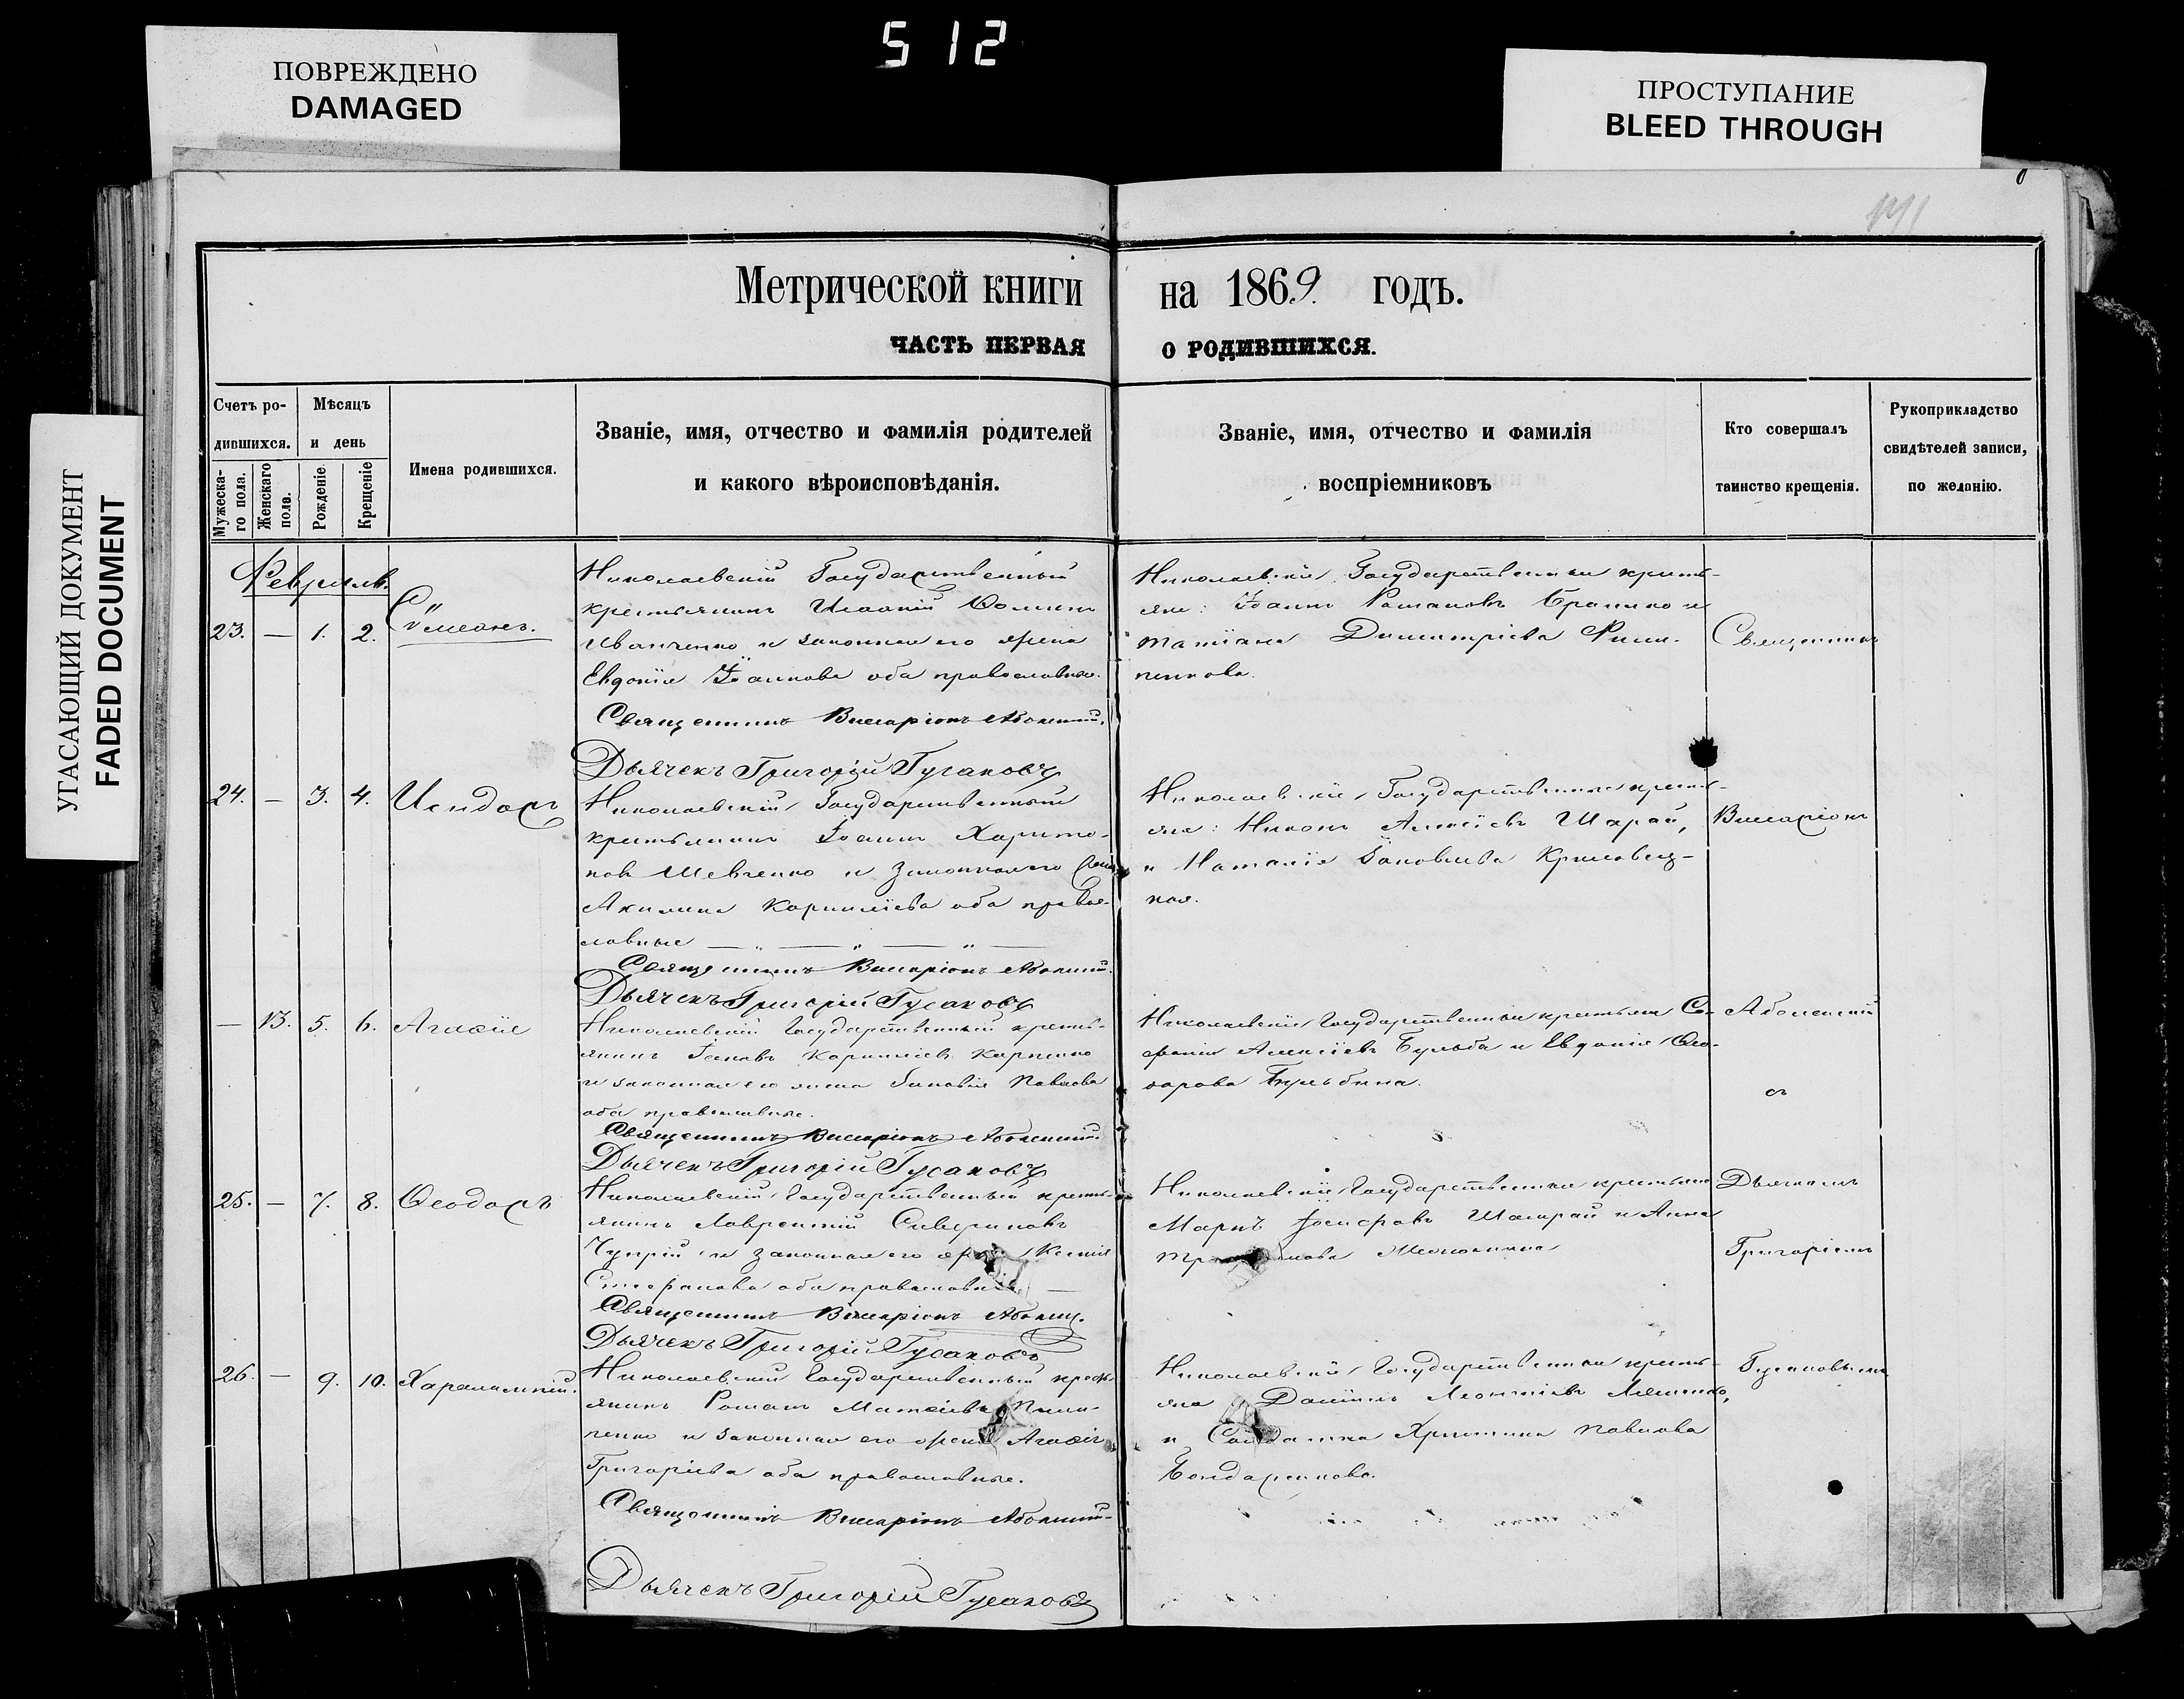 512
ПОВРЕЖДЕНО
DAMAGED
ПРОСТУПАНИЕ
BLEED THROUGH
УГАСАЮЩИЙ ДОКУМЕНТ
FADED DOCUMENT
Метрической книги на 1869. годъ.
ЧАСТЬ ПЕРВАЯ О РОДИВШИХСЯ.
Счетъ ро-
дившихся.
Мужеска-
го пола.
Женскаго
пола.
Мѣсяцъ
и день
Рожденіе.
Крещеніе
Имена родившихся.
Званіе, имя, отчество и фамилія родителей
и какого вѣроисповѣданія.
Званіе, имя, отчество и фамилія
воспріемниковъ
Кто совершалъ
таинство крещенія.
Рукоприкладство
свидѣтелей записи,
по желанію.
Февраль.
23. — 1. 2. Сѵмеонъ.
Николаевскій Государственный
крестьянинъ Иванченко и законная его жена
Евдокія Іоаннова оба православные.
Священникъ Виссаріонъ
Дьячекъ Григорій Гусаковъ
Николаевскіе Государственные кресть-
яне: Іоаннъ Романовъ и
Татіана Димитріева Фили-
пенкова.
Священникъ
24. — 3. 4. Исидоръ
Николаевскій Государственный
крестьянинъ Іоаннъ Харито-
новъ Шевченко и законная его жена
Акилина Корниліева оба право-
славные
Священникъ Виссаріонъ
Дьячекъ Григорій Гусаковъ
Николаевскіе Государственные кресть-
яне: Никонъ Алексіевъ Шарай,
и Наталія Іаковлева
кая.
Виссаріонъ
— 13. 5. 6. Агаѳія
Николаевскій Государственный кресть-
янинъ Іаковъ Корниліевъ Карпенко
и законная его жена Зиновія Павлова
оба православные.
Священникъ Виссаріонъ
Дьячекъ Григорій Гусаковъ
Николаевскіе Государственные крестьяне Со-
фроній Алексіевъ Бульба и Евдокія Ѳео-
дорова Бульбина.
съ
25. — 7. 8. Ѳеодоръ
Николаевскій Государственный кресть-
янинъ Лаврентій Севериновъ
Чуприй и законная его жена Ксенія
Стефанова оба православные
Священникъ Виссаріонъ
Дьячекъ Григорій Гусаковъ
Николаевскіе Государственные крестьяне
Маркъ Іосифовъ Шамрай и Анна
Дьячкомъ
Григоріемъ
26. — 9. 10. Харалампій.
Николаевскій Государственный кресть-
янинъ Романъ Матѳіевъ Фили-
пенко и законная его жена Агаѳія
Григоріева оба православные.
Священникъ Виссаріонъ
Дьячекъ Григорій Гусаковъ
Николаевскій Государственные кресть-
яне Даніилъ Леонтіевъ Ляшенко,
и Солдатка Христина Павлова
Бондаренкова.
Гусаковымъ